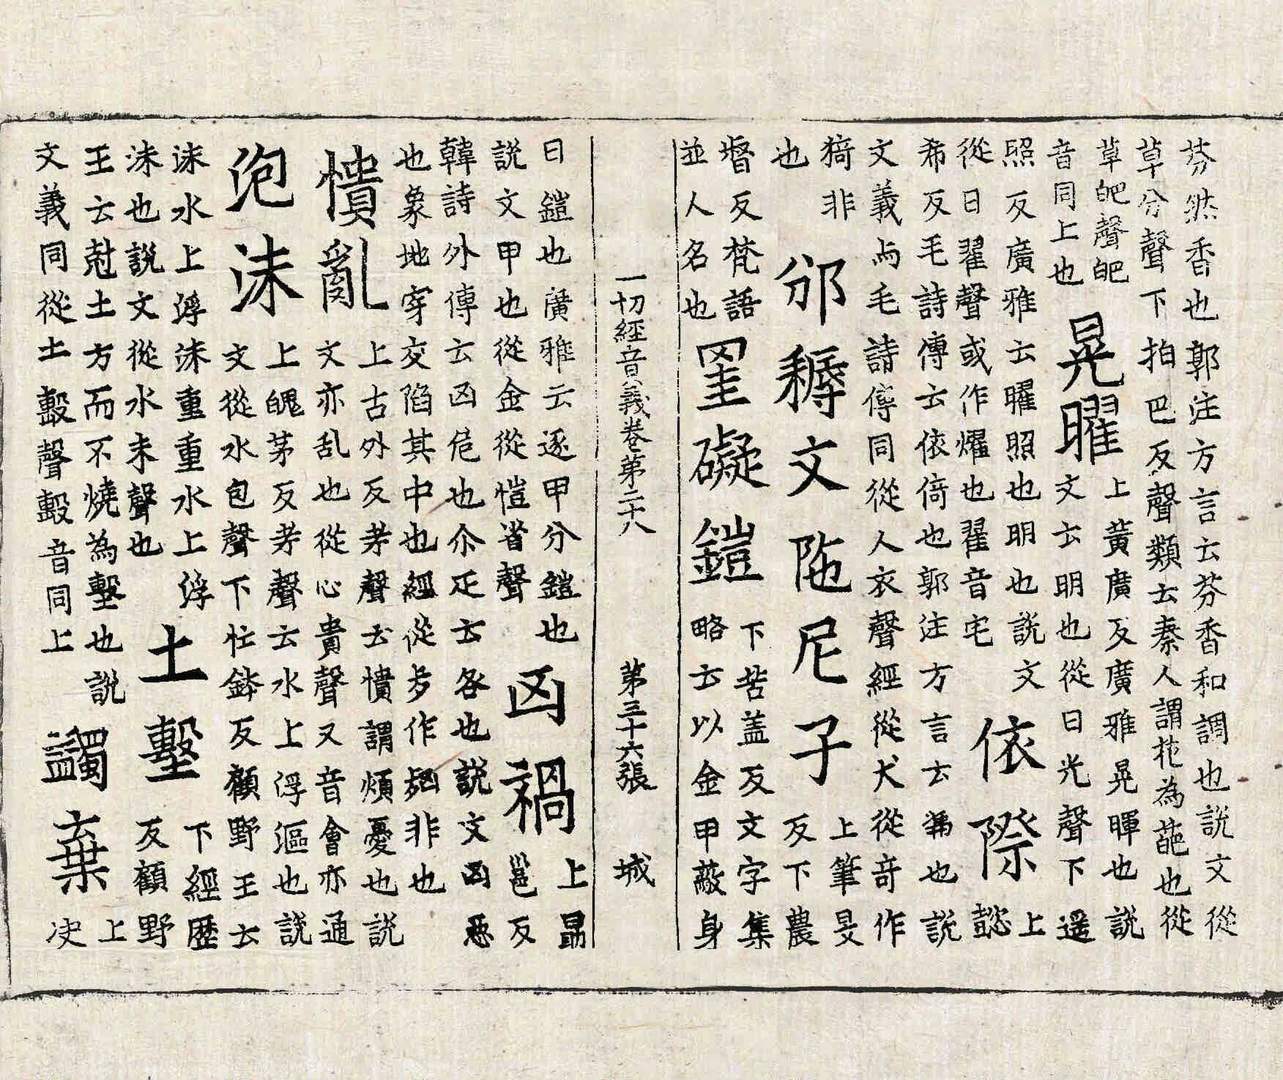 芬然香也郭注方言云芬香和調也說文從
草分聲下拍巴反聲類云秦人謂花為葩也從
草皅聲皅
音同上也
晃曜
上黃廣反廣雅晃暉也說
文云明也從日光聲下遥
照反廣雅云曜照也明也說文
從日翟聲或作燿也翟音宅
依際
上
懿
希反毛詩傳云依倚也郭注方言云也說
文義与毛詩傳同從人衣聲經從犬從奇作
猗非
也
邠耨文陁尼子
上筆旻
反下農
督反梵語
並人名也
罣礙鎧
下苦盖反文字集
略云以金甲蔽身
一切經音義卷第二十八 第三十六張 城
曰鎧也廣雅云逐甲分鎧也
說文甲也從金從愷省聲
凶禍
上勗
邕反
韓詩外傳云凶危也尒疋云各也說文凶惡
也象地穿交陷其中也經從歹作非也
憒亂
上古外反考聲云憒謂煩憂也說
文亦乱也從心貴聲又音會亦通
皰沫
上魄茅反考聲云水上浮漚也說
文從水包聲下忙鉢反顧野王云
沫水上浮沫重重水上浮
沫也說文從水末聲也
土墼
下經歴
反顧野
王云尅土方而不燒為墼也說
文義同從土毄聲毄音同上
蠲棄
上
决